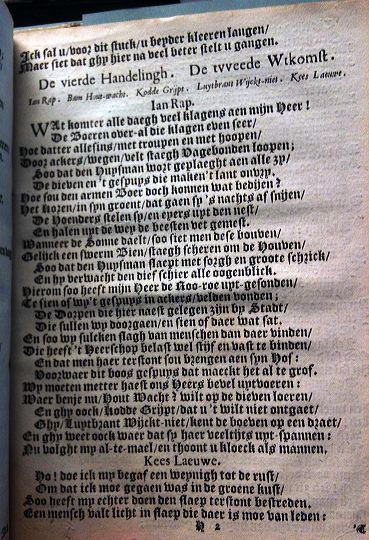 Ick sal u/voor dit stuck/u beyder kleeren langen/
Maer siet dat ghy hier na veel beter stelt u gangen.
De vierde Handelingh. De tvveede Wtkomst.
Ian Rap. Bam Hout-wacht. Kodde Grijpt. Luytbrant Wijckt-niet. Kees Leeuwe.
Ian Rap.
WAt komter alle daegh veel klagens aen mijn Heer!
De Boeren over-al die klagen even seer/
Hoe datter allesins/met troupen en met hoopen/
Door ackers/wegen/velt staegh Vagebonden loopen;
Soo dat den Huysman wort geplaeght aen alle zy/
De dieven en 't gespuys die maken't lant onvry.
Hoe sou den armen Boer doch konnen wat bedijen?
Het Kozen/in syn groent/dat gaen sy 's nachts af snijen/
De Hoenders stelen sy/en eyers uyt den nest/
En halen uyt de wey de beesten vet gemest.
Wanneer de Sonne daelt/soo siet men dese bouven/
Gelijck een swerm Bien/staegh scheren om de Houven/
Soo dat den Huysman slaept met sorgh en groote schrick/
En hy verwacht den dief schier alle oogenblick.
Hierom soo heeft mijn Heer de Roo-roe uyt-gesonden/
Te sien of wy't gespuys in ackers/velden vonden;
De Dorpen die hier naest gelegen zijn by Stadt/
Die sullen wy doorgaen/en sien of daer wat sat.
En soo wy sulcken slagh van menschen dan daer vinden/
Die heeft 't Heerschop belast wel stijf en vast te binden/
En dat men haer terstont sou brengen aen syn Hof:
Voorwaer dit boos gespuys dat maeckt het al te grof.
Wy moeten metter haest ons Heers bevel uytvoeren:
Waer benje nu/Hout Wacht? wilt op de dieven loeren/
En ghy oock/Kodde Grijpt/dat u 't wilt niet ontgaet/
Ghy/Luytbrant Wijckt-niet/kent de boeven op een draet/
En ghy weet oock waer dat sy haer veeltijts uyt-spannen:
Nu volght my al-te-mael/en thoont u kloeck als mannen.
Kees Leeuwe.
Ho! doe ick my begaf een weynigh tot de rust/
Om dat ick moe gegaen was in de groene kust/
Soo heeft my echter doen den slaep terstont bestreden.
Een mensch valt licht in slaep die daer is moe van leden:
H 2